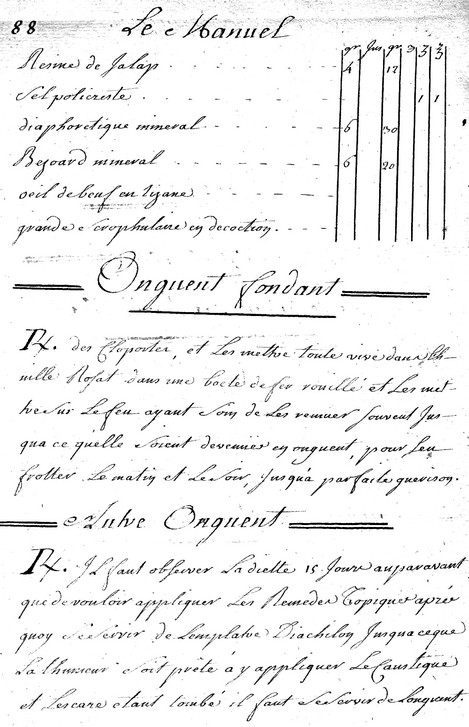 88
Le Manuel
gr Jus gr ℈ ʒ ℥
Resine de Jalap 4 12
Sel policreste 1 1
diaphoretique mineral 6 30
Bezoard mineral 6 20
oeil de beuf en tizane
grande scrophulaire en decoction.
Onguent fondant
℞. des Cloportes, et Les mettre toute vive dans
huille Rosat dans une boete de fer rouillé et Les met-
tre sur Le feu ayant soin de Les remuer souvent Jus-
qua ce quelle soient devenües en onguent, pour sen
frotter Le matin et Le soir, Jusqua parfaite guerison.
Autre Onguent
℞. Jl faut observer La diette 15 Jours auparavant
que de vouloir appliquer Les Remedes Topiques aprés
quoy se servir de Lemplatre Diachilon Jusqua ceque
La thumeur soit prête a y appliquer Le Caustique
et Lescare etant tombé il faut se servir de Longuent.